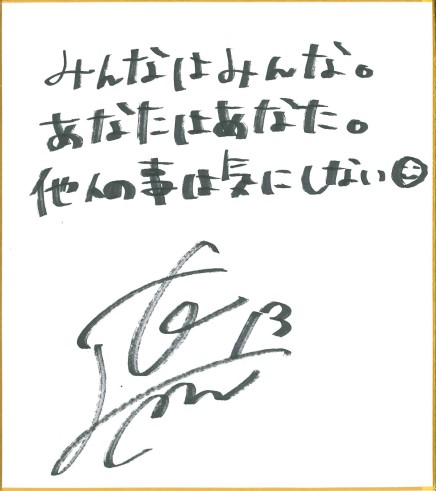 みんなはみんな。
あなたはあなた。
他人の事は気にしない
13